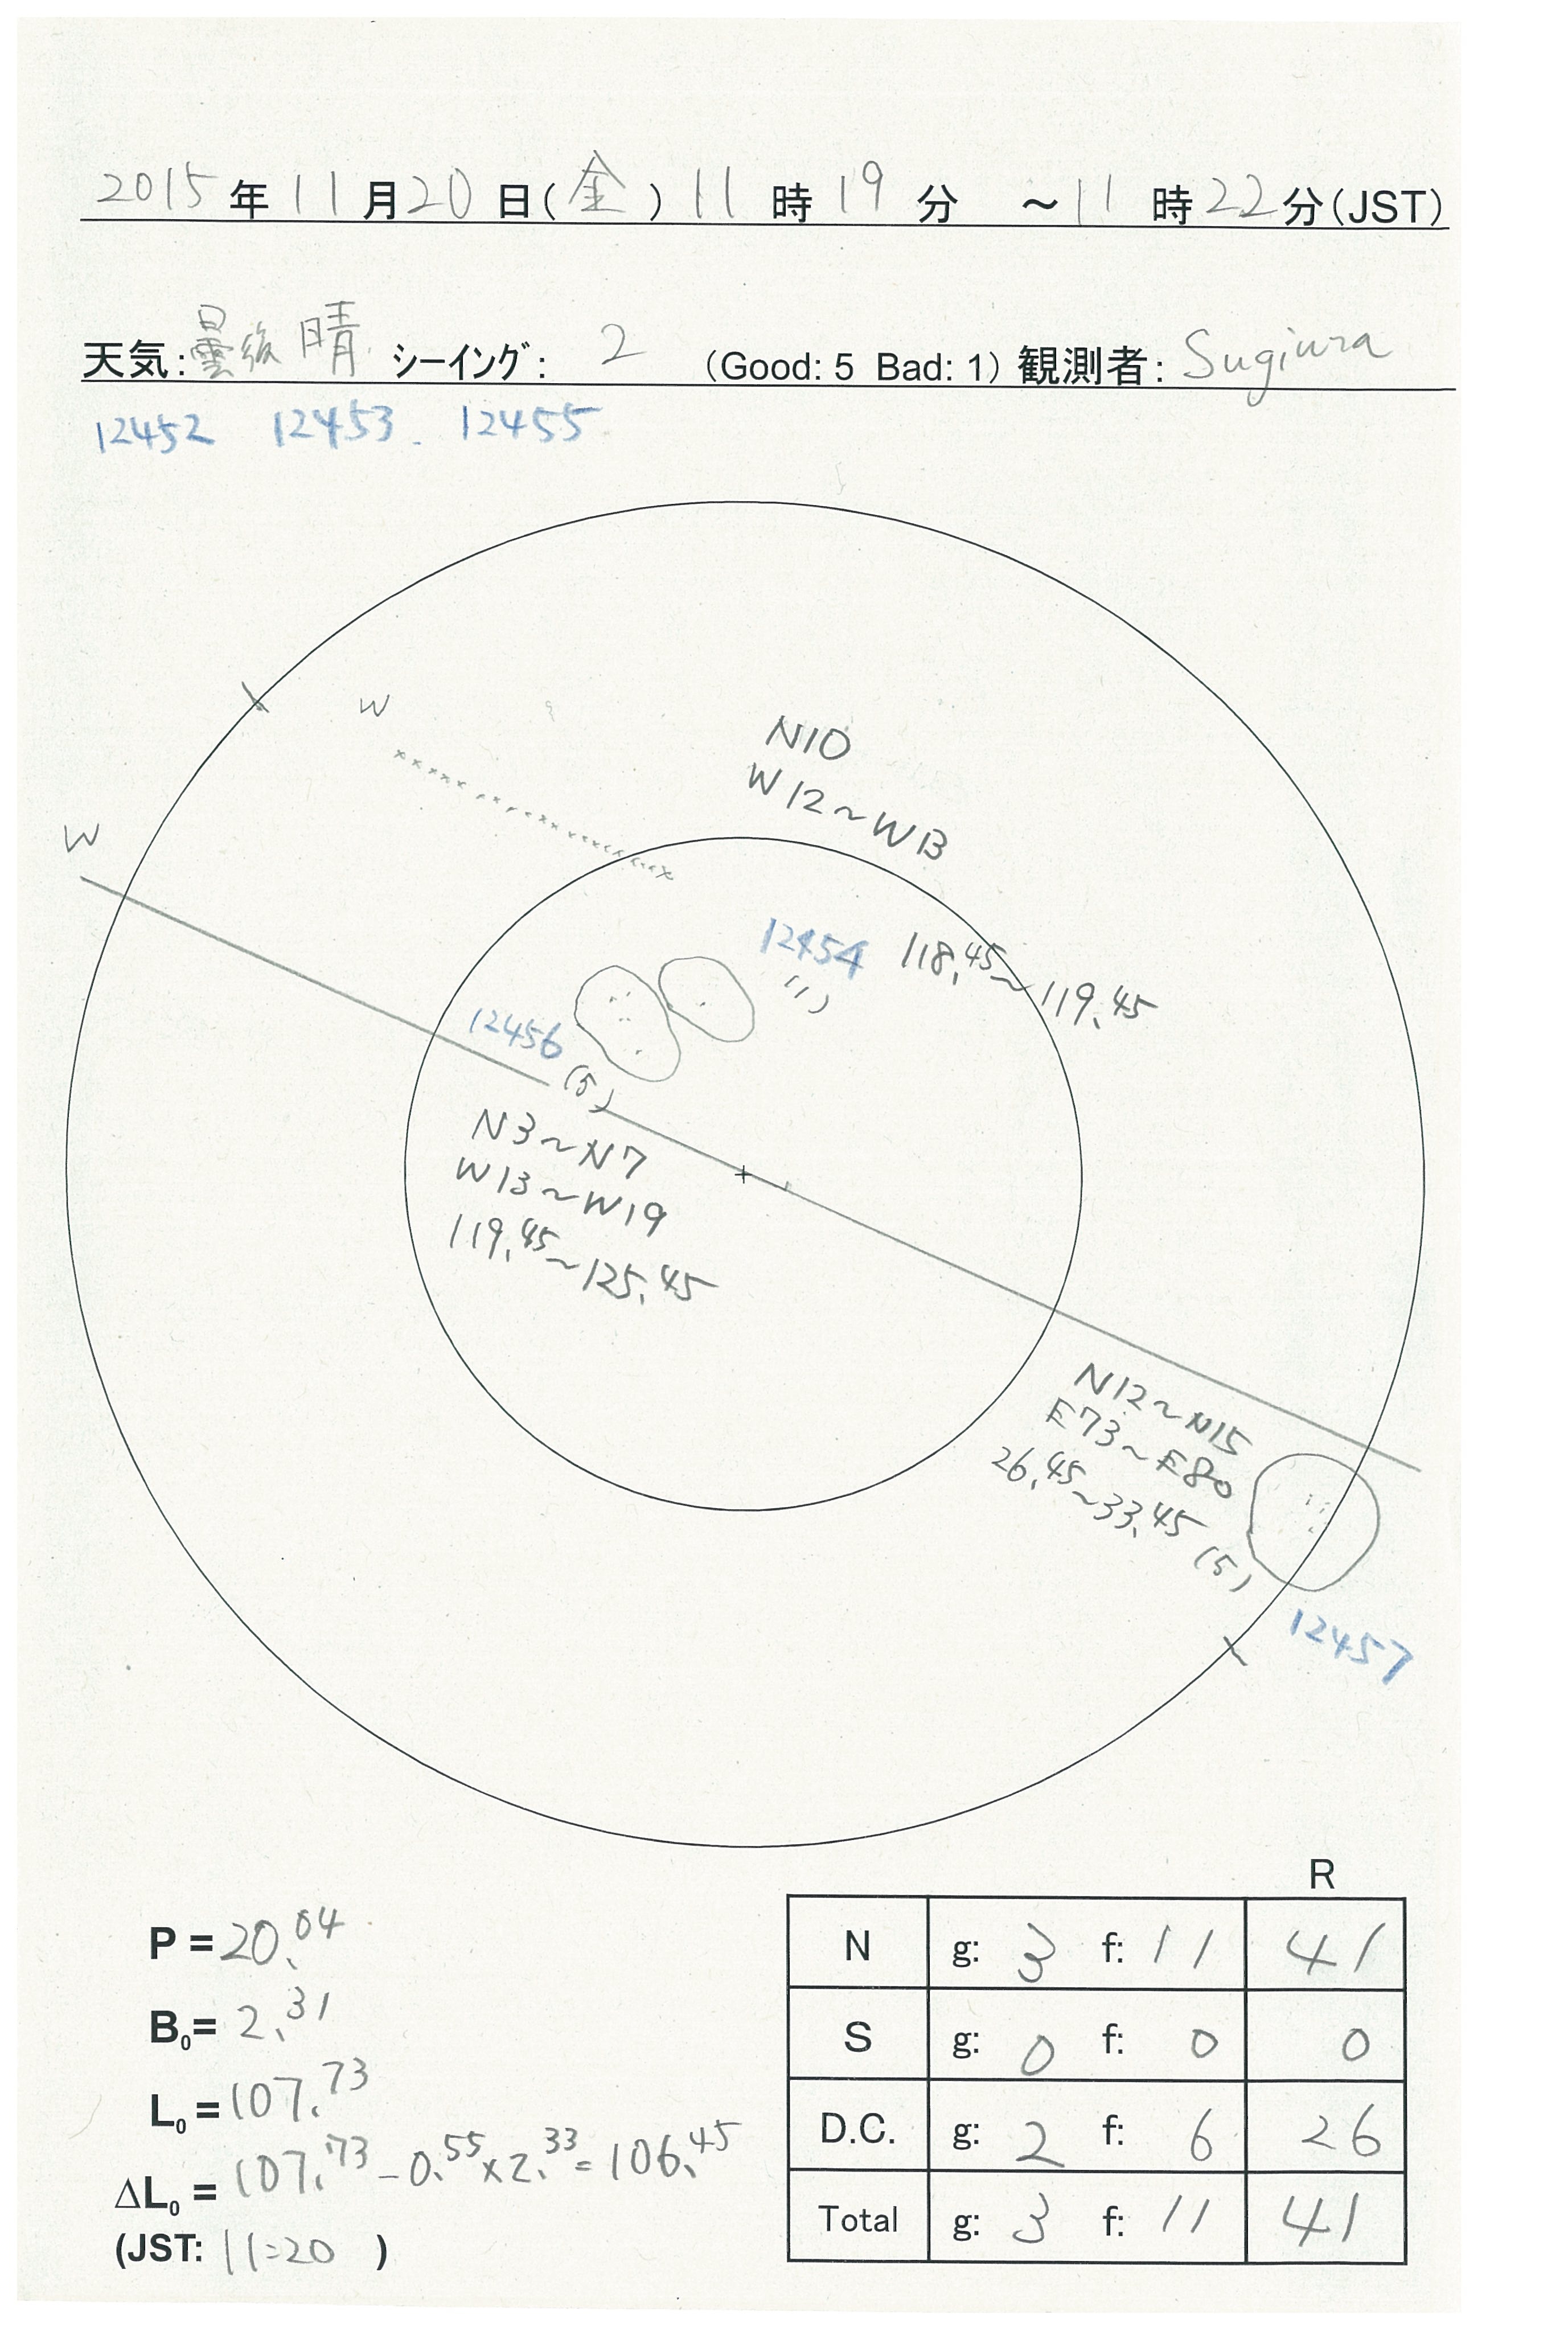 2015年11月20日(金)11時19分 ～11時22分(JST)
天気:曇後晴 シーイング: 2 (Good: 5 Bad: 1) 観測者: Sugiura
12452 12453 12455
W
N10
W12～W13
W
12454 118.45～119.45
(1)
12456
(5)
N3～N7
W13～W19
119.45～125.45
N12～N15
E73～E80
26.45～33.45
(5)
12457
R
P=20.04
N g: 3 f: 11 41
B0= 2.31
S g: 0 f: 0 0
L0=107.73
D.C. g: 2 f: 6 26
ΔL0= 107.73-0.55×2.33=106.45
Total g: 3 f: 11 41
(JST: 11:20 )